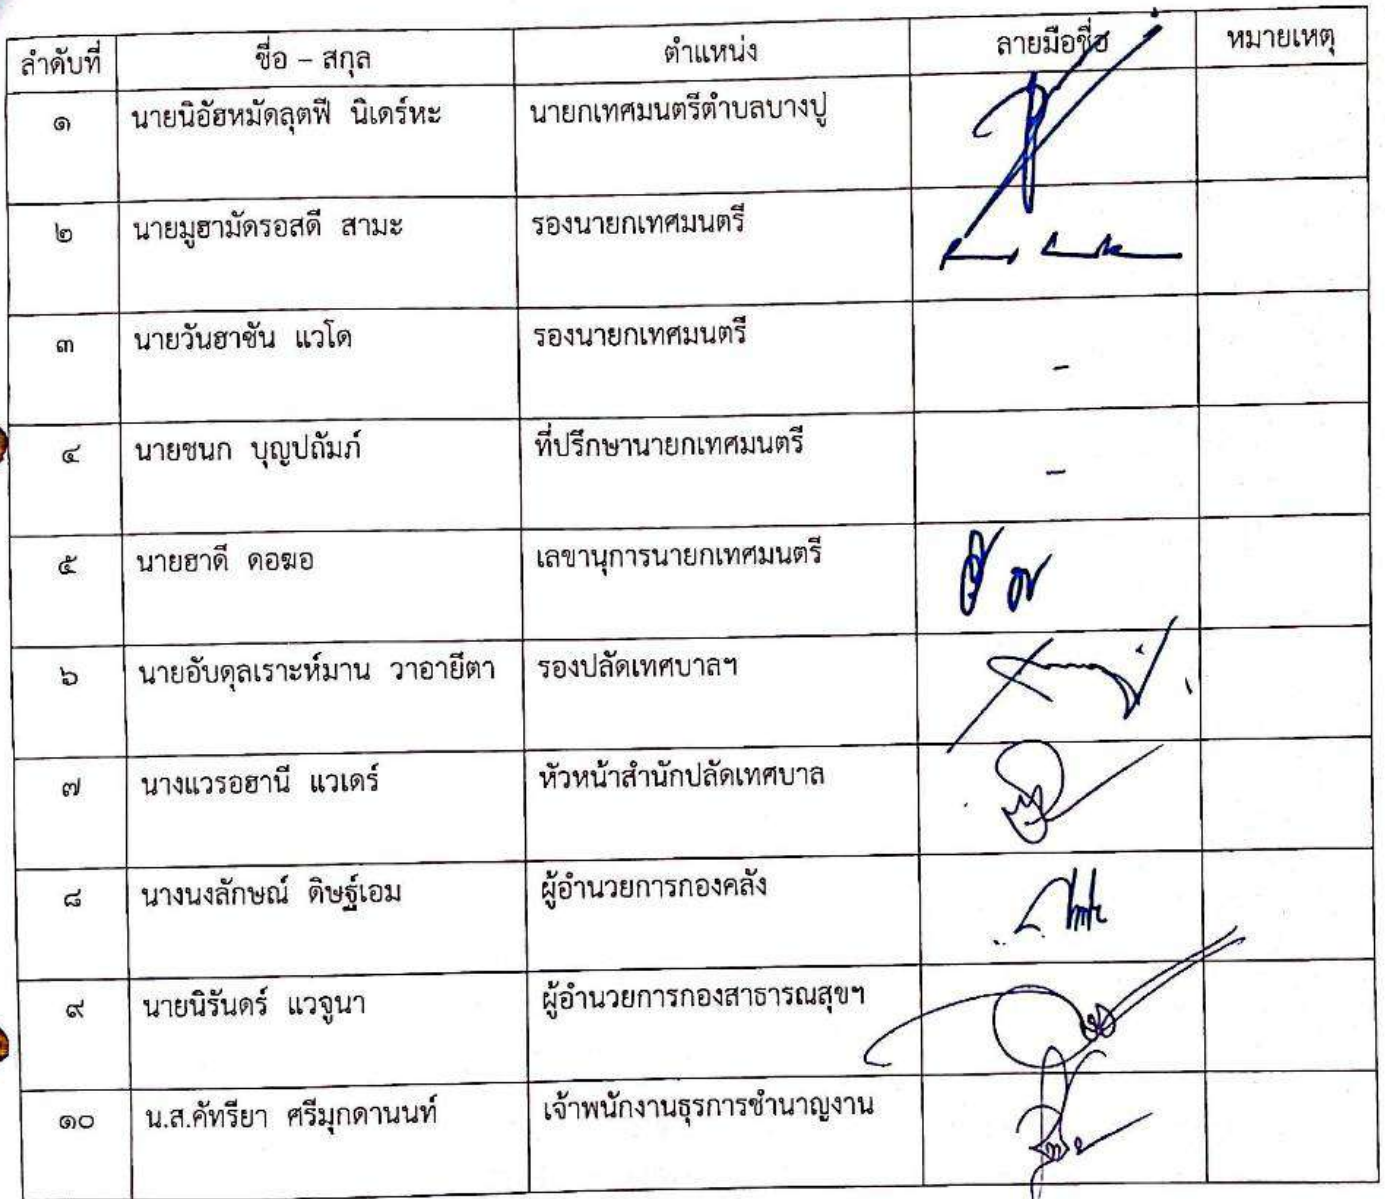 ลำดับที่ ชื่อ – สกุล ตำแหน่ง ลายมือชื่อ หมายเหตุ
๑ นายนิอัฮหมัดลุตฟี นิเดร์หะ นายกเทศมนตรีตำบลบางปู
๒ นายมูฮามัดรอสดี สามะ รองนายกเทศมนตรี
๓ นายวันฮาซัน แวโด รองนายกเทศมนตรี -
๔ นายชนก บุญปถัมภ์ ที่ปรึกษานายกเทศมนตรี -
๕ นายฮาดี ดอฆอ เลขานุการนายกเทศมนตรี
๖ นายอับดุลเราะห์มาน วาอายีตา รองปลัดเทศบาลฯ
๗ นางแวรอฮานี แวเดร์ หัวหน้าสำนักปลัดเทศบาล
๘ นางนงลักษณ์ ดิษฐ์เอม ผู้อำนวยการกองคลัง
๙ นายนิรันดร์ แวจูนา ผู้อำนวยการกองสาธารณสุขฯ
๑๐ น.ส.คัทรียา ศรีมุกดานนท์ เจ้าพนักงานธุรการชำนาญงาน